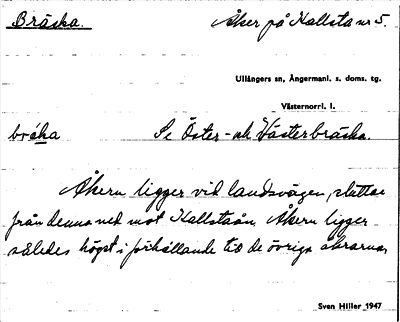 Bräcka. Åker på Kallsta nr 5.
Ullångers sn, Ångermanl. s. doms. tg.
Västernorrl. l.
bräka Se Öster- och Västerbräcka.
Åkern ligger vid landsvägen, sluttar
från denna ned mot Kallstaån. Åkern ligger
således högst i förhållande till de övriga åkrarna,
Sven Hiller 1947